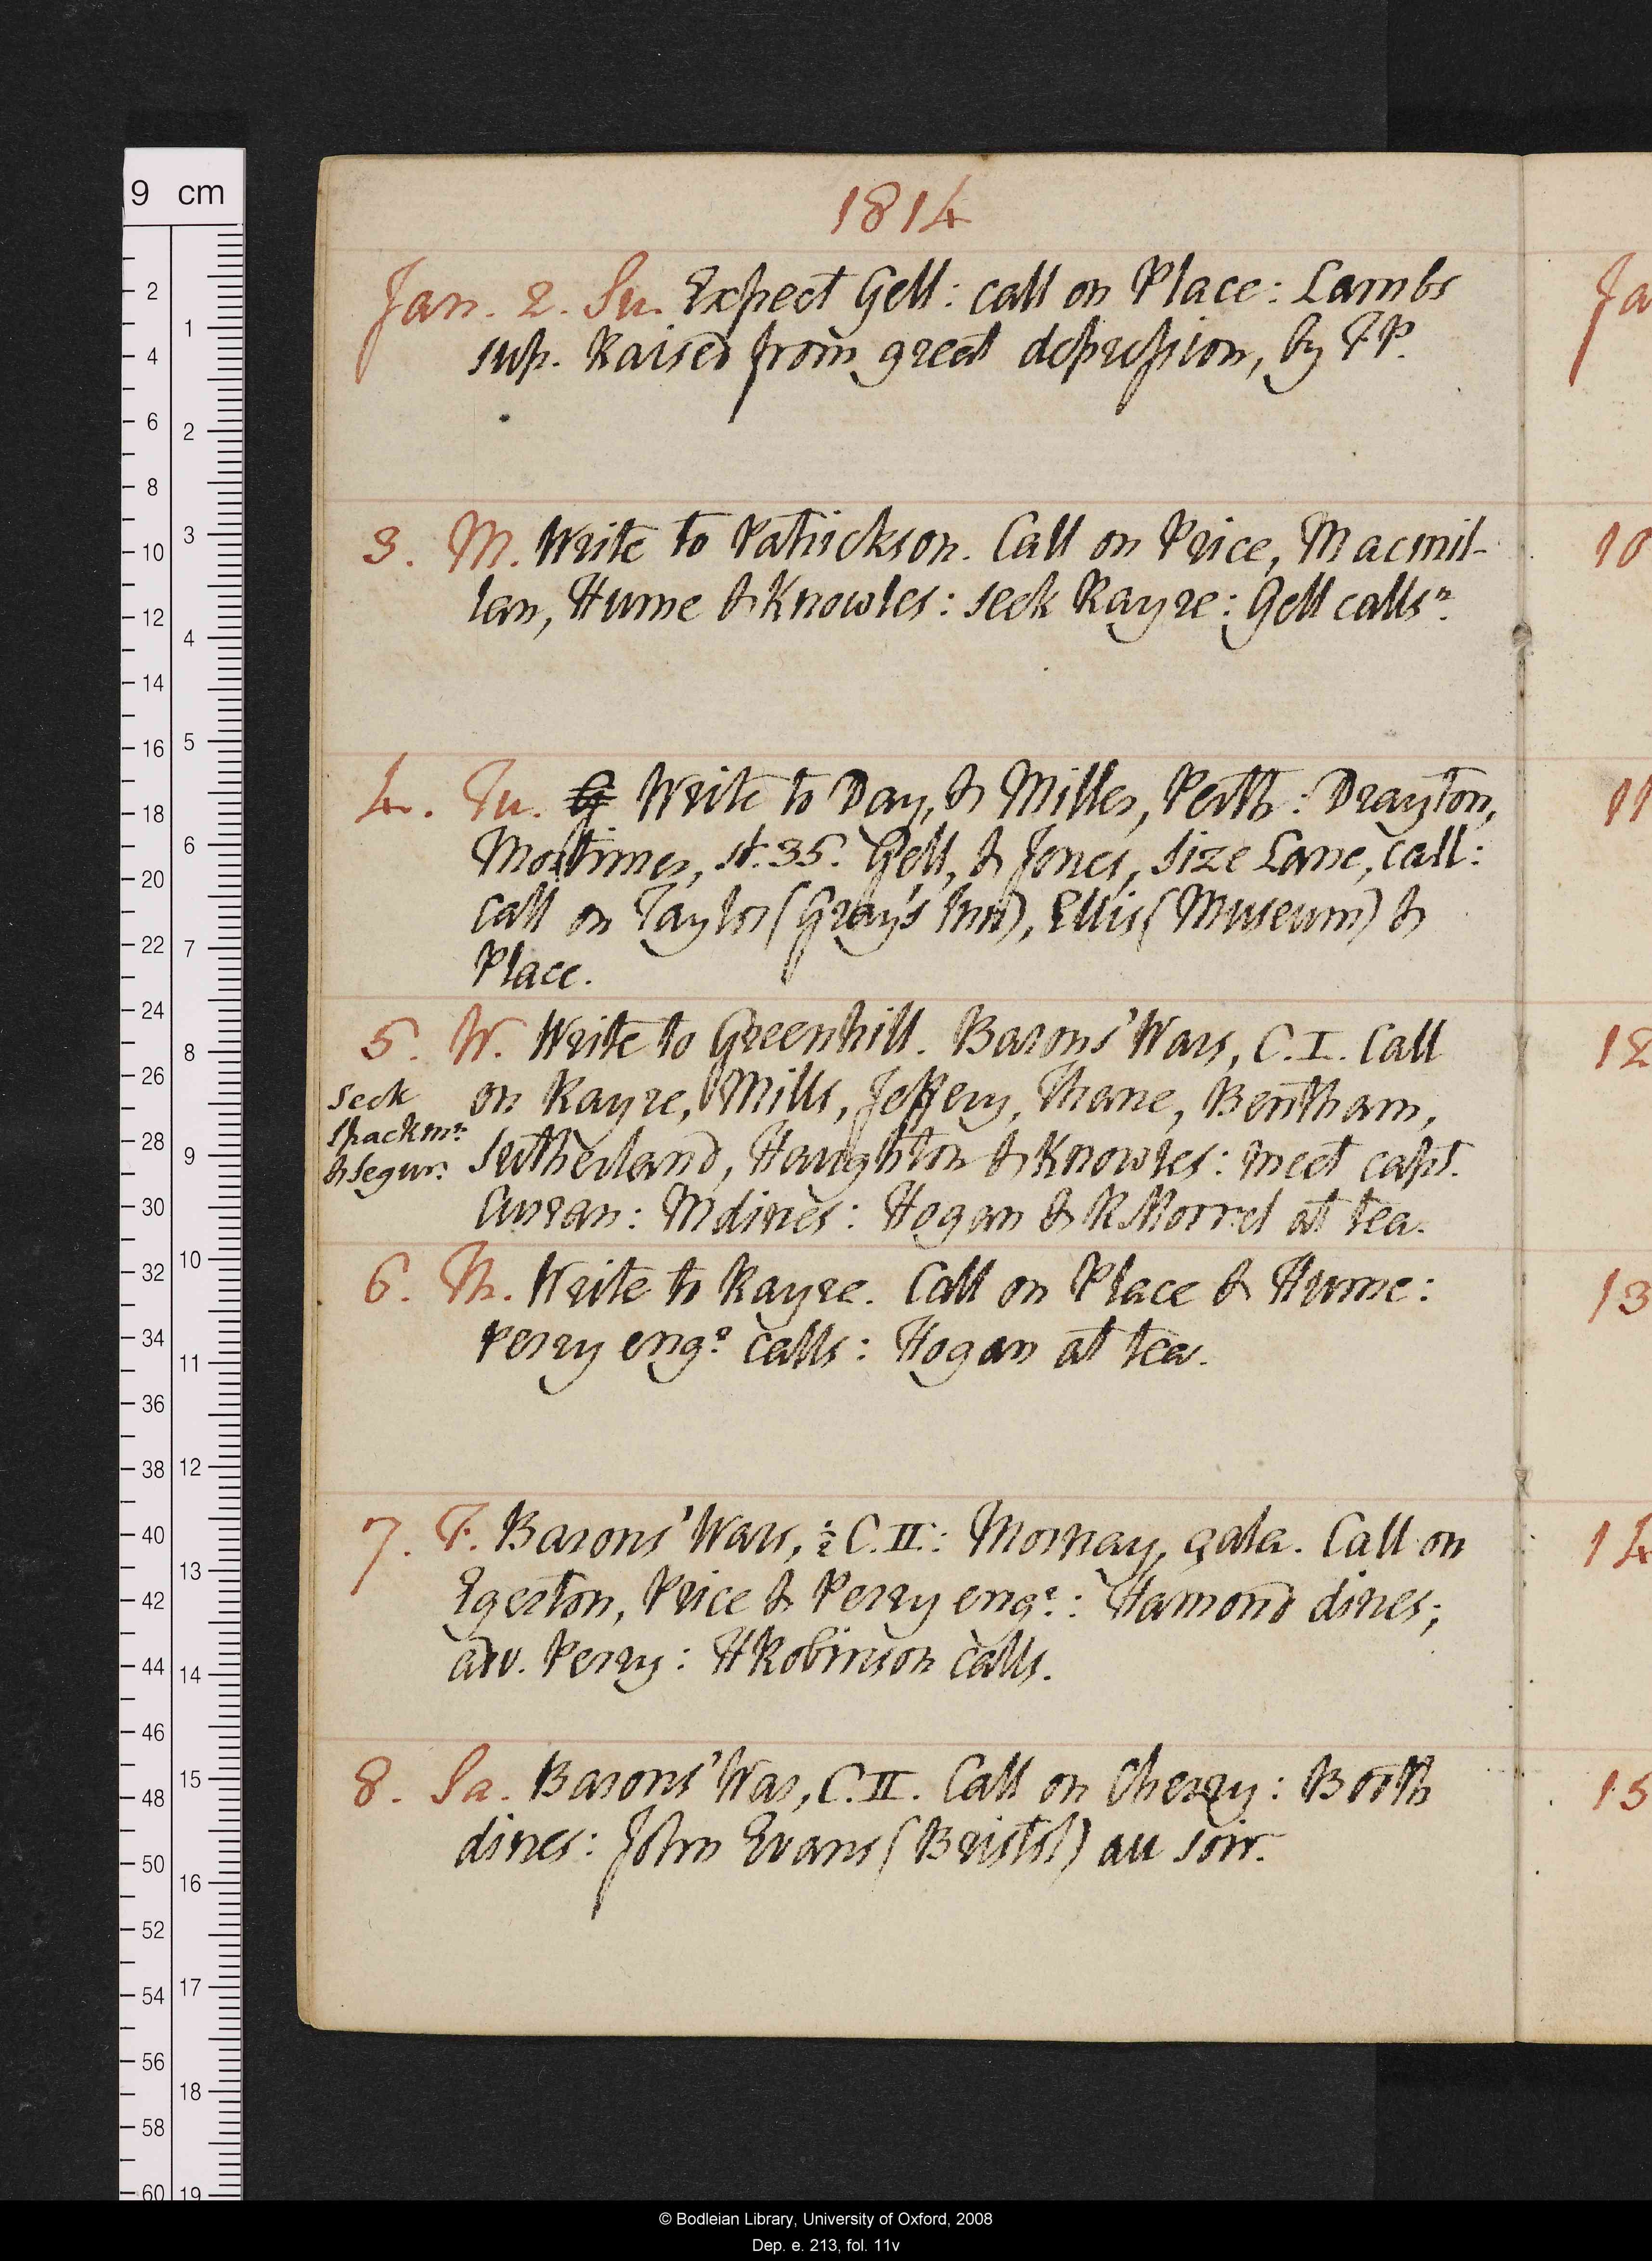 1814
Jan. 2. Su. Expect Gell: call on Place: Lambs
sup. Raised from great depression, by F.P.
3. M. Write to Patrickson. Call on Price, Macmil-
lan, Hume & Knowles: seek Rayre: Gell callsⁿ.
4. Tu. G Write to Day, & Miller, Perth: Drayton,
Mortimer, st. 35. Gell, & Jones, Size Lane, call:
call on Taylor (Gray's Inn), Ellis (Museum) &
Place.
5. W. Write to Greenhill. Barons' Wars, C. I. Call
on Rayre, Mills, Jeffery, Thane, Bentham,
Sutherland, Haughton & Knowles: meet capt.
Curran: M dines: Hogan & R Morrel at tea.
Seek
Spackmⁿ
& Segur.
6. Th. Write to Rayre. Call on Place & Hume:
Perry engʳ. calls: Hogan at tea.
7. F. Barons' Wars, ½ C. II: Mornay, gala. Call on
Egerton, Price & Perry engʳ.: Hamond dines;
adv. Perry: H Robinson calls.
8. Sa. Barons' War, C. II. Call on Cherry: Booth
dines: John Evans (Bristol) au soir.
Ja
10
11
12
13
14
15
9 cm
2
4
6
8
10
12
14
16
18
20
22
24
26
28
30
32
34
36
38
40
42
44
46
48
50
52
54
56
58
60
1
2
3
4
5
6
7
8
9
10
11
12
13
14
15
16
17
18
19
© Bodleian Library, University of Oxford, 2008
Dep. e. 213, fol. 11v